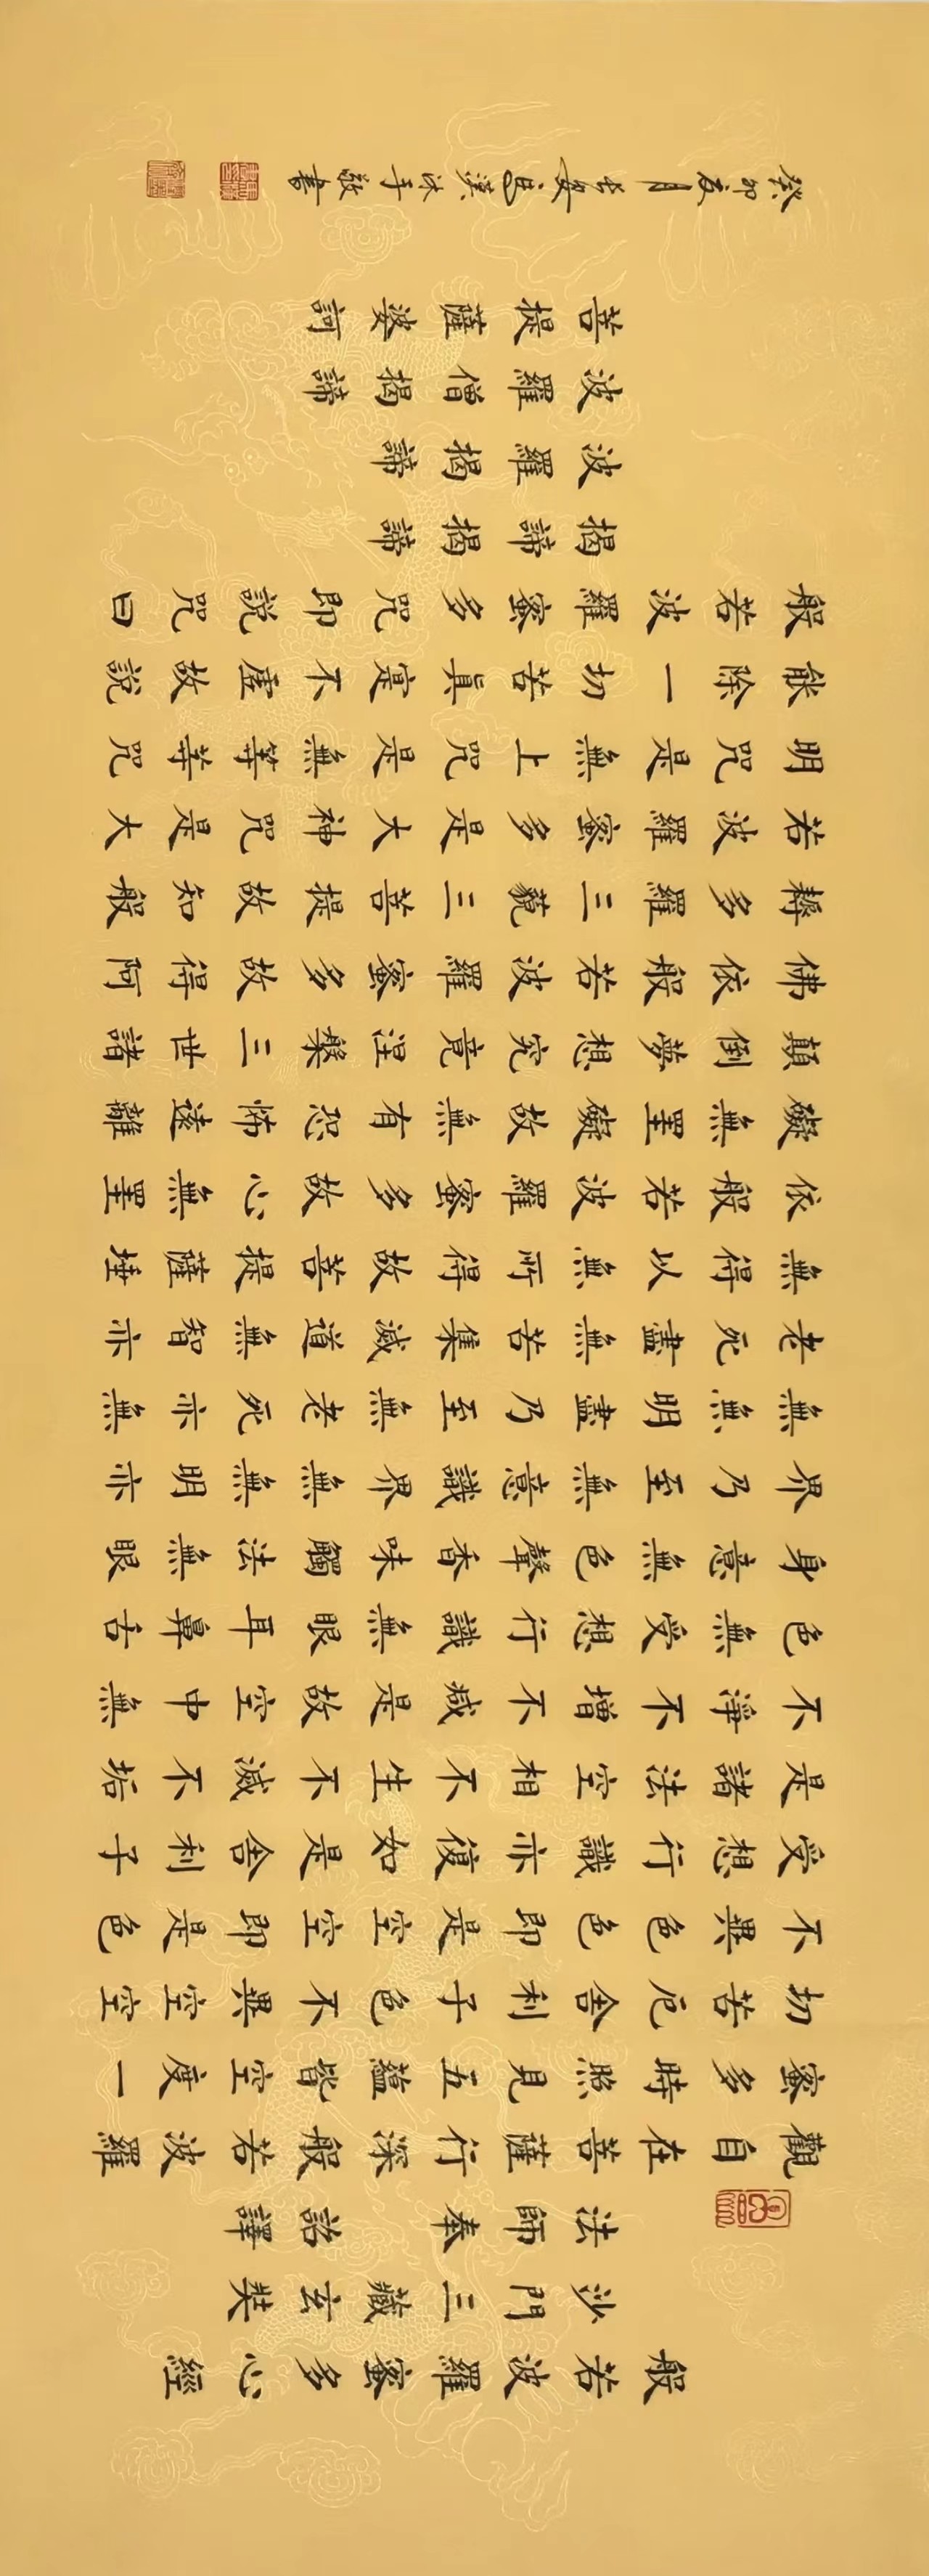 般若波羅蜜多心經
沙門三藏玄奘
法師奉詔譯
觀自在菩薩行深般若波羅
蜜多時照見五蘊皆空度一
切苦厄舍利子色不異空空
不異色色即是空空即是色
受想行識亦復如是舍利子
是諸法空相不生不滅不垢
不淨不增不減是故空中無
色無受想行識無眼耳鼻舌
身意無色聲香味觸法無眼
界乃至無意識界無無明亦
無無明盡乃至無老死亦無
老死盡無苦集滅道無智亦
無得以無所得故菩提薩埵
依般若波羅蜜多故心無罣
礙無罣礙故無有恐怖遠離
顛倒夢想究竟涅槃三世諸
佛依般若波羅蜜多故得阿
耨多羅三藐三菩提故知般
若波羅蜜多是大神咒是大
明咒是無上咒是無等等咒
能除一切苦眞寔不虛故說
般若波羅蜜多咒即說咒曰
揭諦揭諦
波羅揭諦
波羅僧揭諦
菩提薩婆訶
癸卯夏月長安思漢沐手敬書